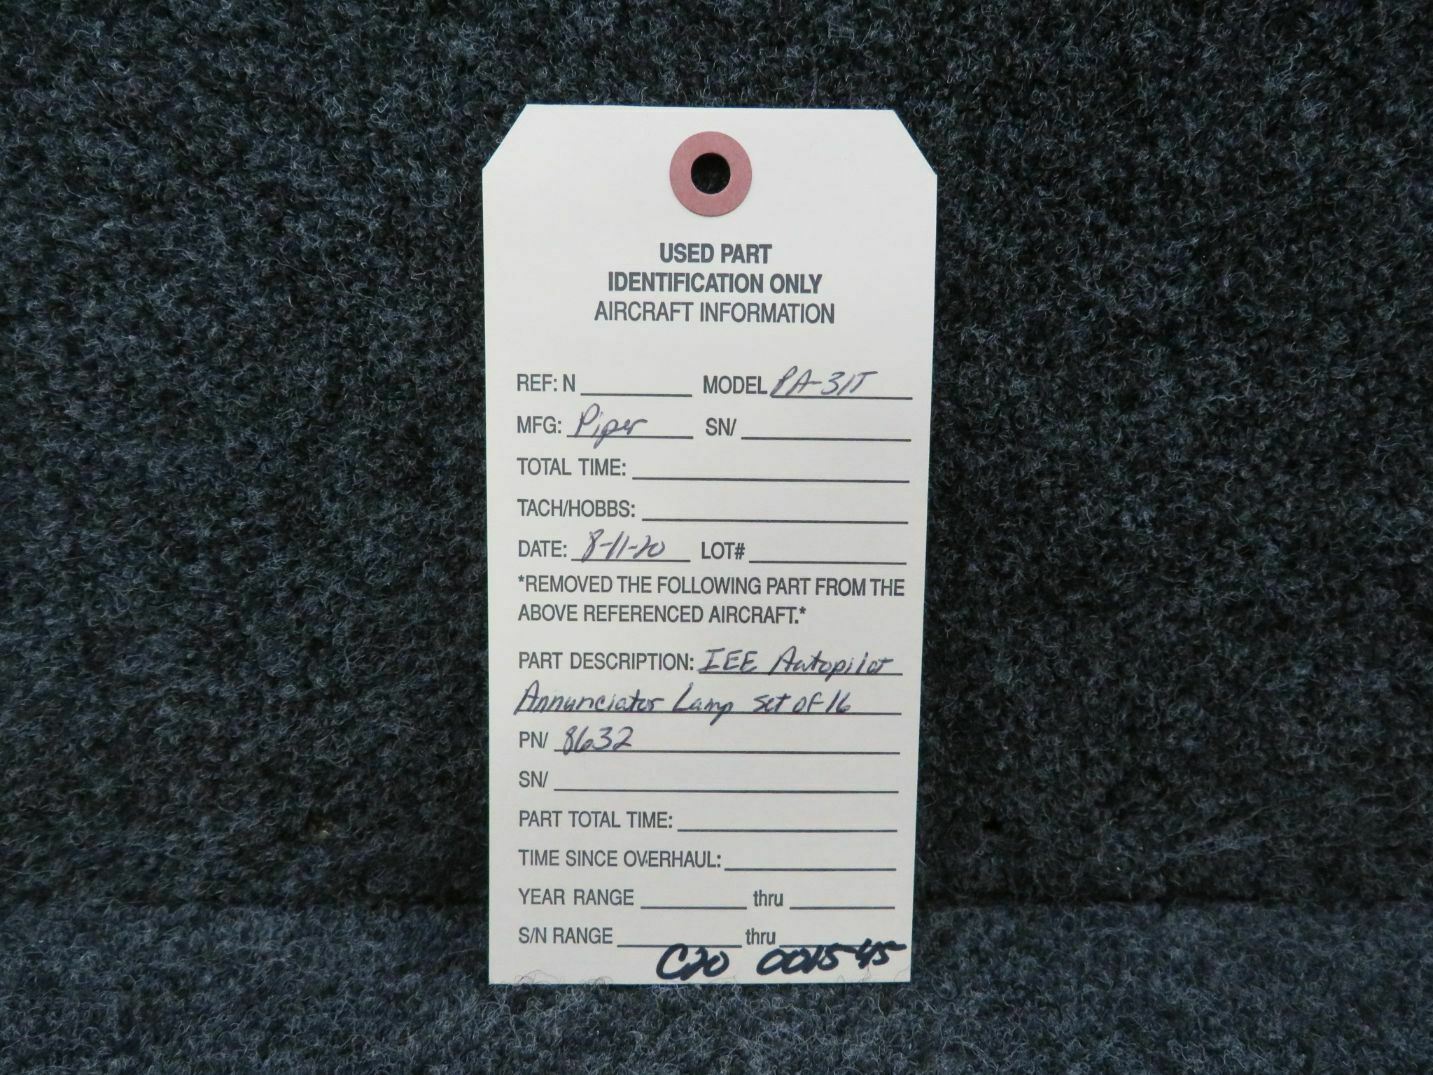 USED PART
IDENTIFICATION ONLY
AIRCRAFT INFORMATION
REF: N MODEL PA-31T
MFG: Piper SN/
TOTAL TIME:
TACH/HOBBS:
DATE: 8-11-20 LOT#
*REMOVED THE FOLLOWING PART FROM THE
ABOVE REFERENCED AIRCRAFT.*
PART DESCRIPTION: IEE Autopilot
Annunciator Lamp set of 16
PN/ 8632
SN/
PART TOTAL TIME:
TIME SINCE OVERHAUL:
YEAR RANGE thru
S/N RANGE thru
C20 001545